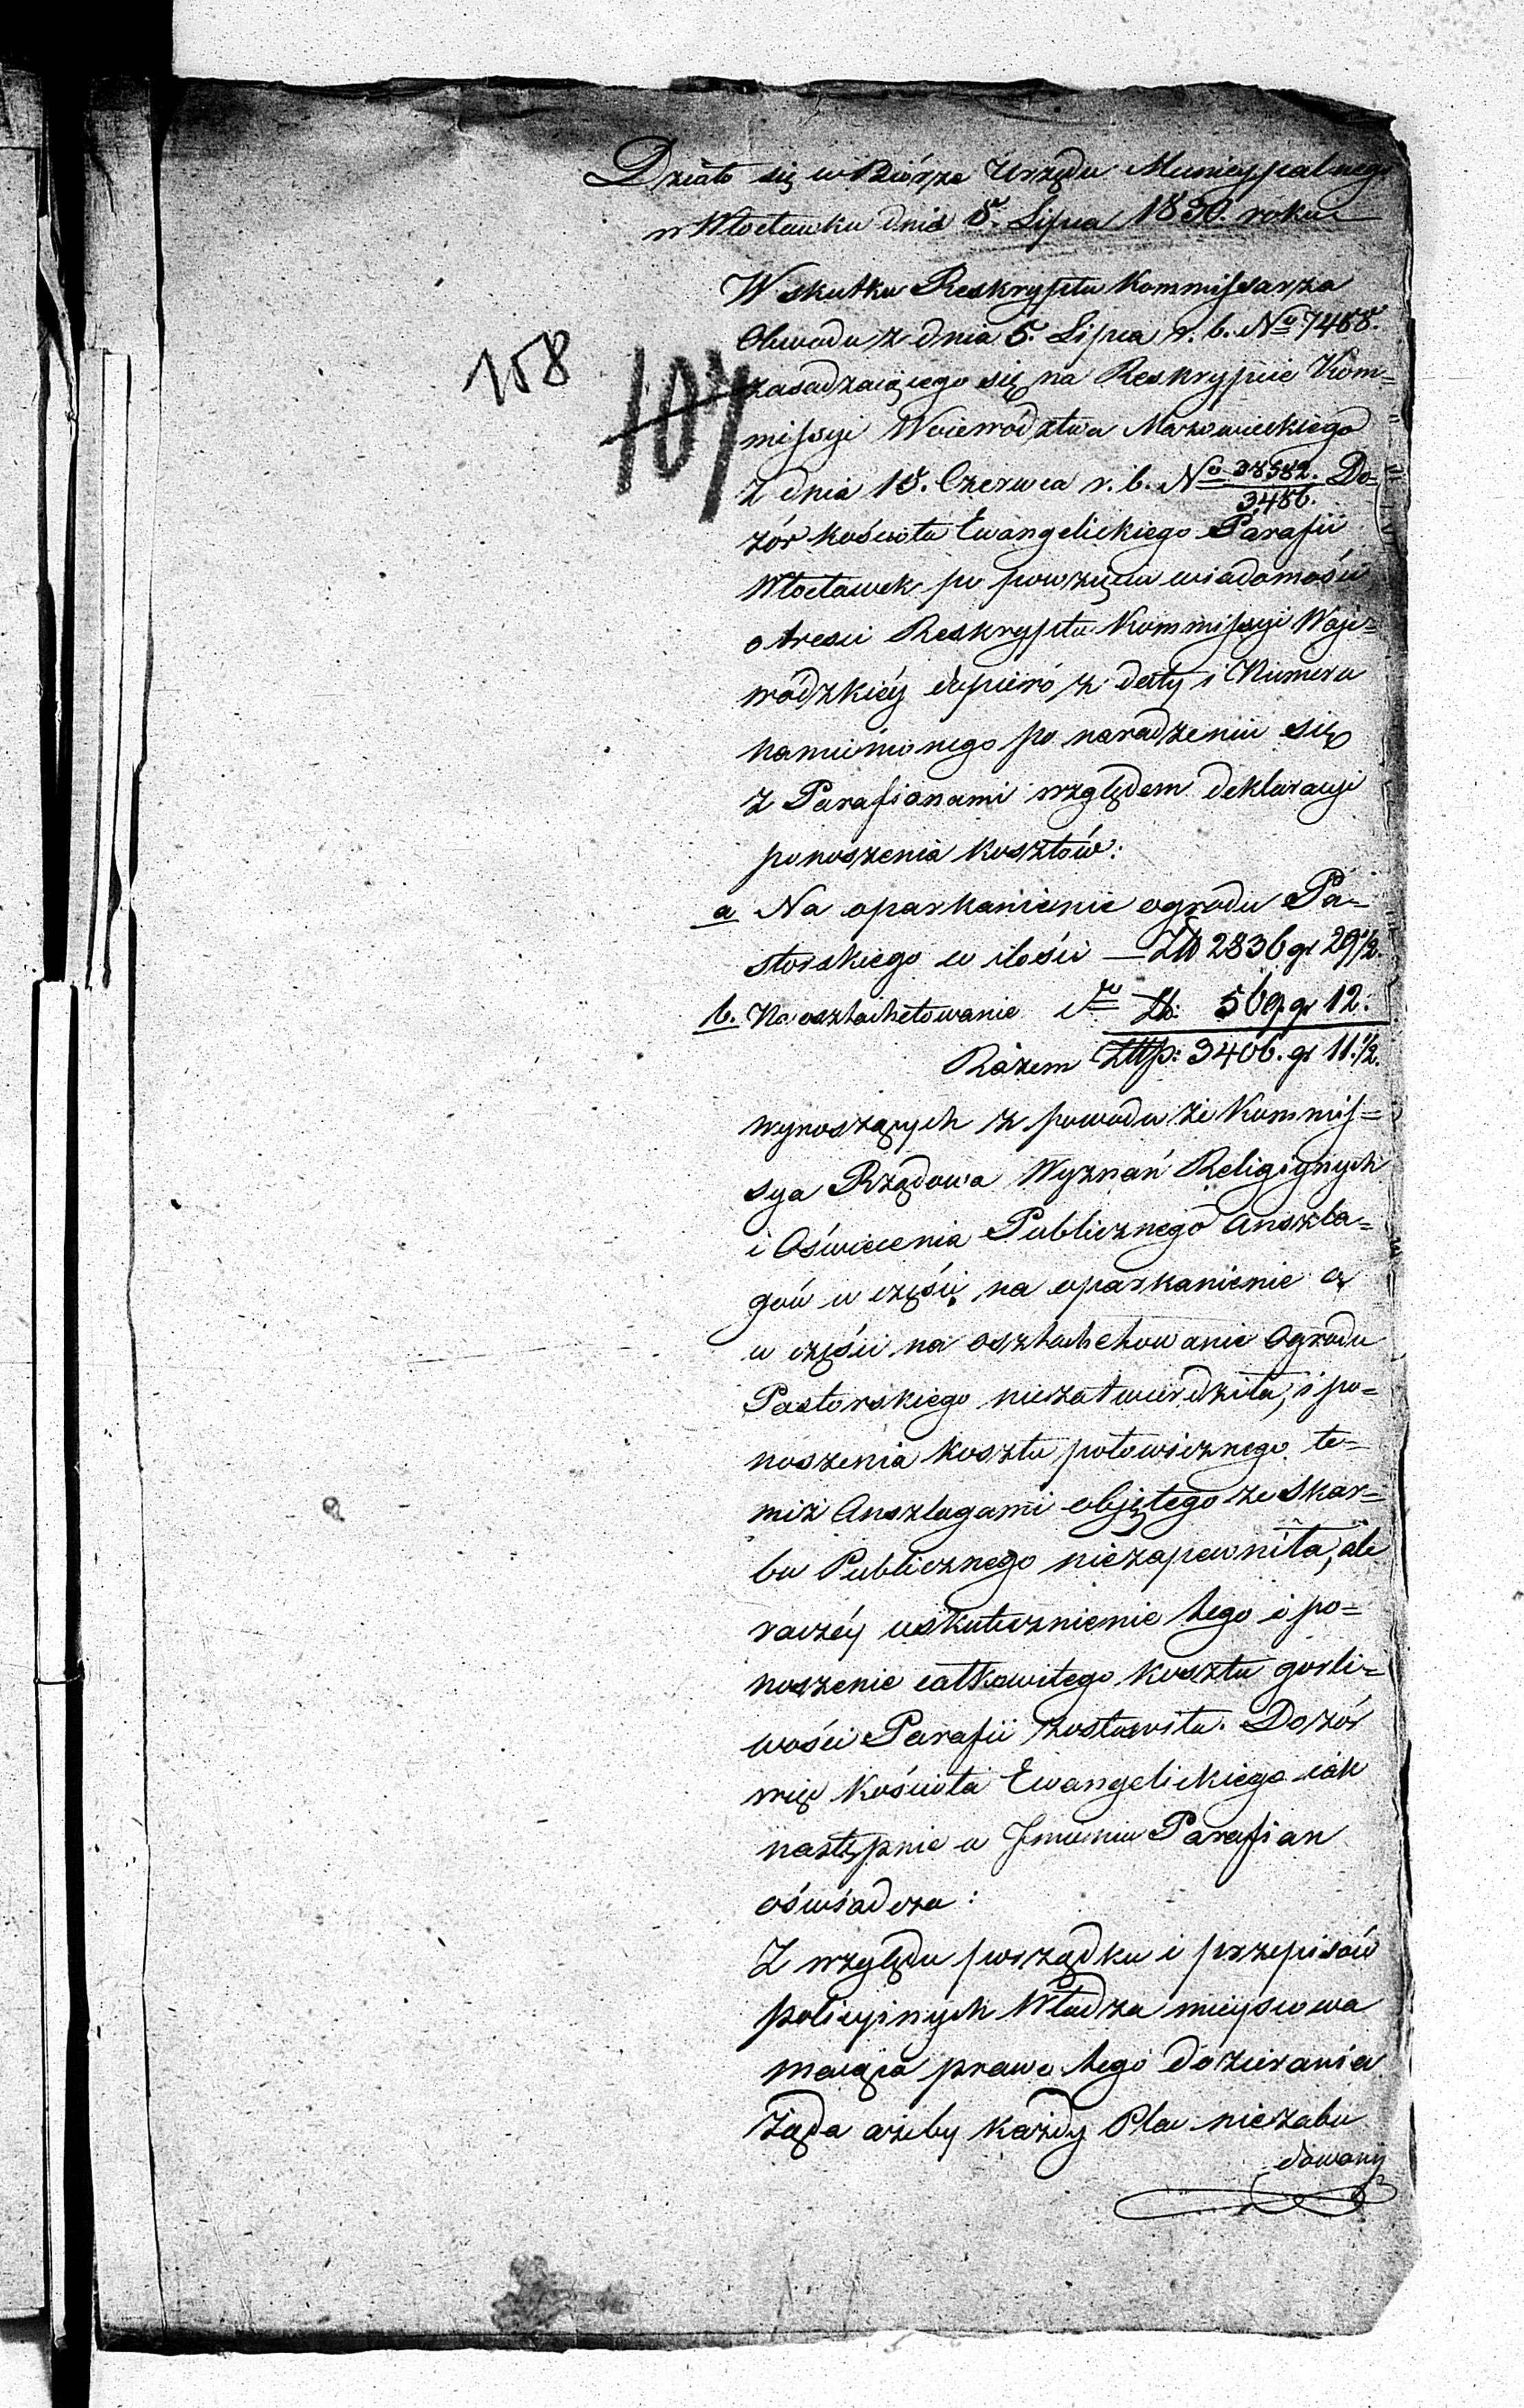 Działo się w Biórze Urzędu Municypalnego
w Włocławku dnia 8. Lipca 1830. roku
W skutku Reskryptu Kommissarza
Obwodu z dnia 5. Lipca r. b. No 7488.
158
107
zasadzaiącego się na Reskrypcie Kom=
missyi Woiewództwa Mazowieckiego
z dnia 18. Czerwca r. b. No 38582. Do=
3486.
zór kościoła Ewangelickiego Parafii
Włocławek po powzięciu wiadomości
o tresci Reskryptu Kommissyi Woje=
wódzkiéy dopiéro z daty i Numeru
namienionego po naradzeniu się
z Parafianami względem deklaracyi
ponoszenia kosztów:
a Na oparkanienie ogrodu Pa=
storskiego w ilości — Złp 2836 gr 29 1/2.
b. Na osztachetowanie Zł: 569. gr 12.
Razem Złlp: 3406. gr 11. 1/2.
wynoszących z powodu że Kommis=
sya Rządowa Wyznań Religiynych
i Oświecenia Publicznego Anszla=
gów w części na oparkanienie a
w części na osztachetowanie Ogrodu
Pastorskiego niezatwierdziła, i po=
noszenia kosztu połowicznego te=
miż Anszlagami objętego ze Skar=
bu Publicznego niezapewniła, ale
raczéy uskutecznienie tego i po=
noszenie całkowitego kosztu gorli=
wości Parafii zostawiła. Dozór
więc Kościoła Ewangelickiego iak
następnie w Jmieniu Parafian
oświadcza:
Z względu porządku i przepisów
policyinych Władza mieyscowa
maiąca prawo tego dozierania
żąda ażeby każdy Plac niezabu
dowany